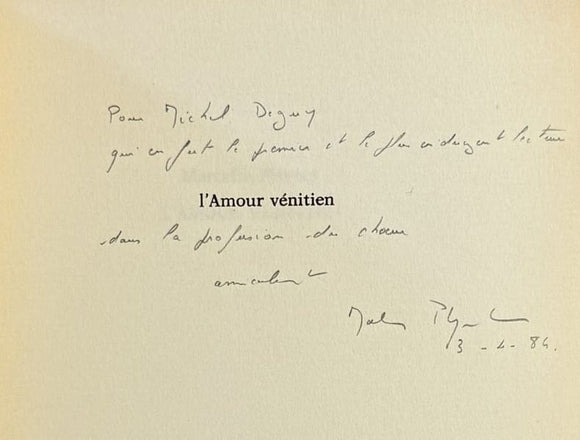 Pour Michel Deguy
qui en fut le premier et le plus indulgent lecteur
l'Amour vénitien
dans la profusion du chœur
amicalement
3 - 4 - 84.